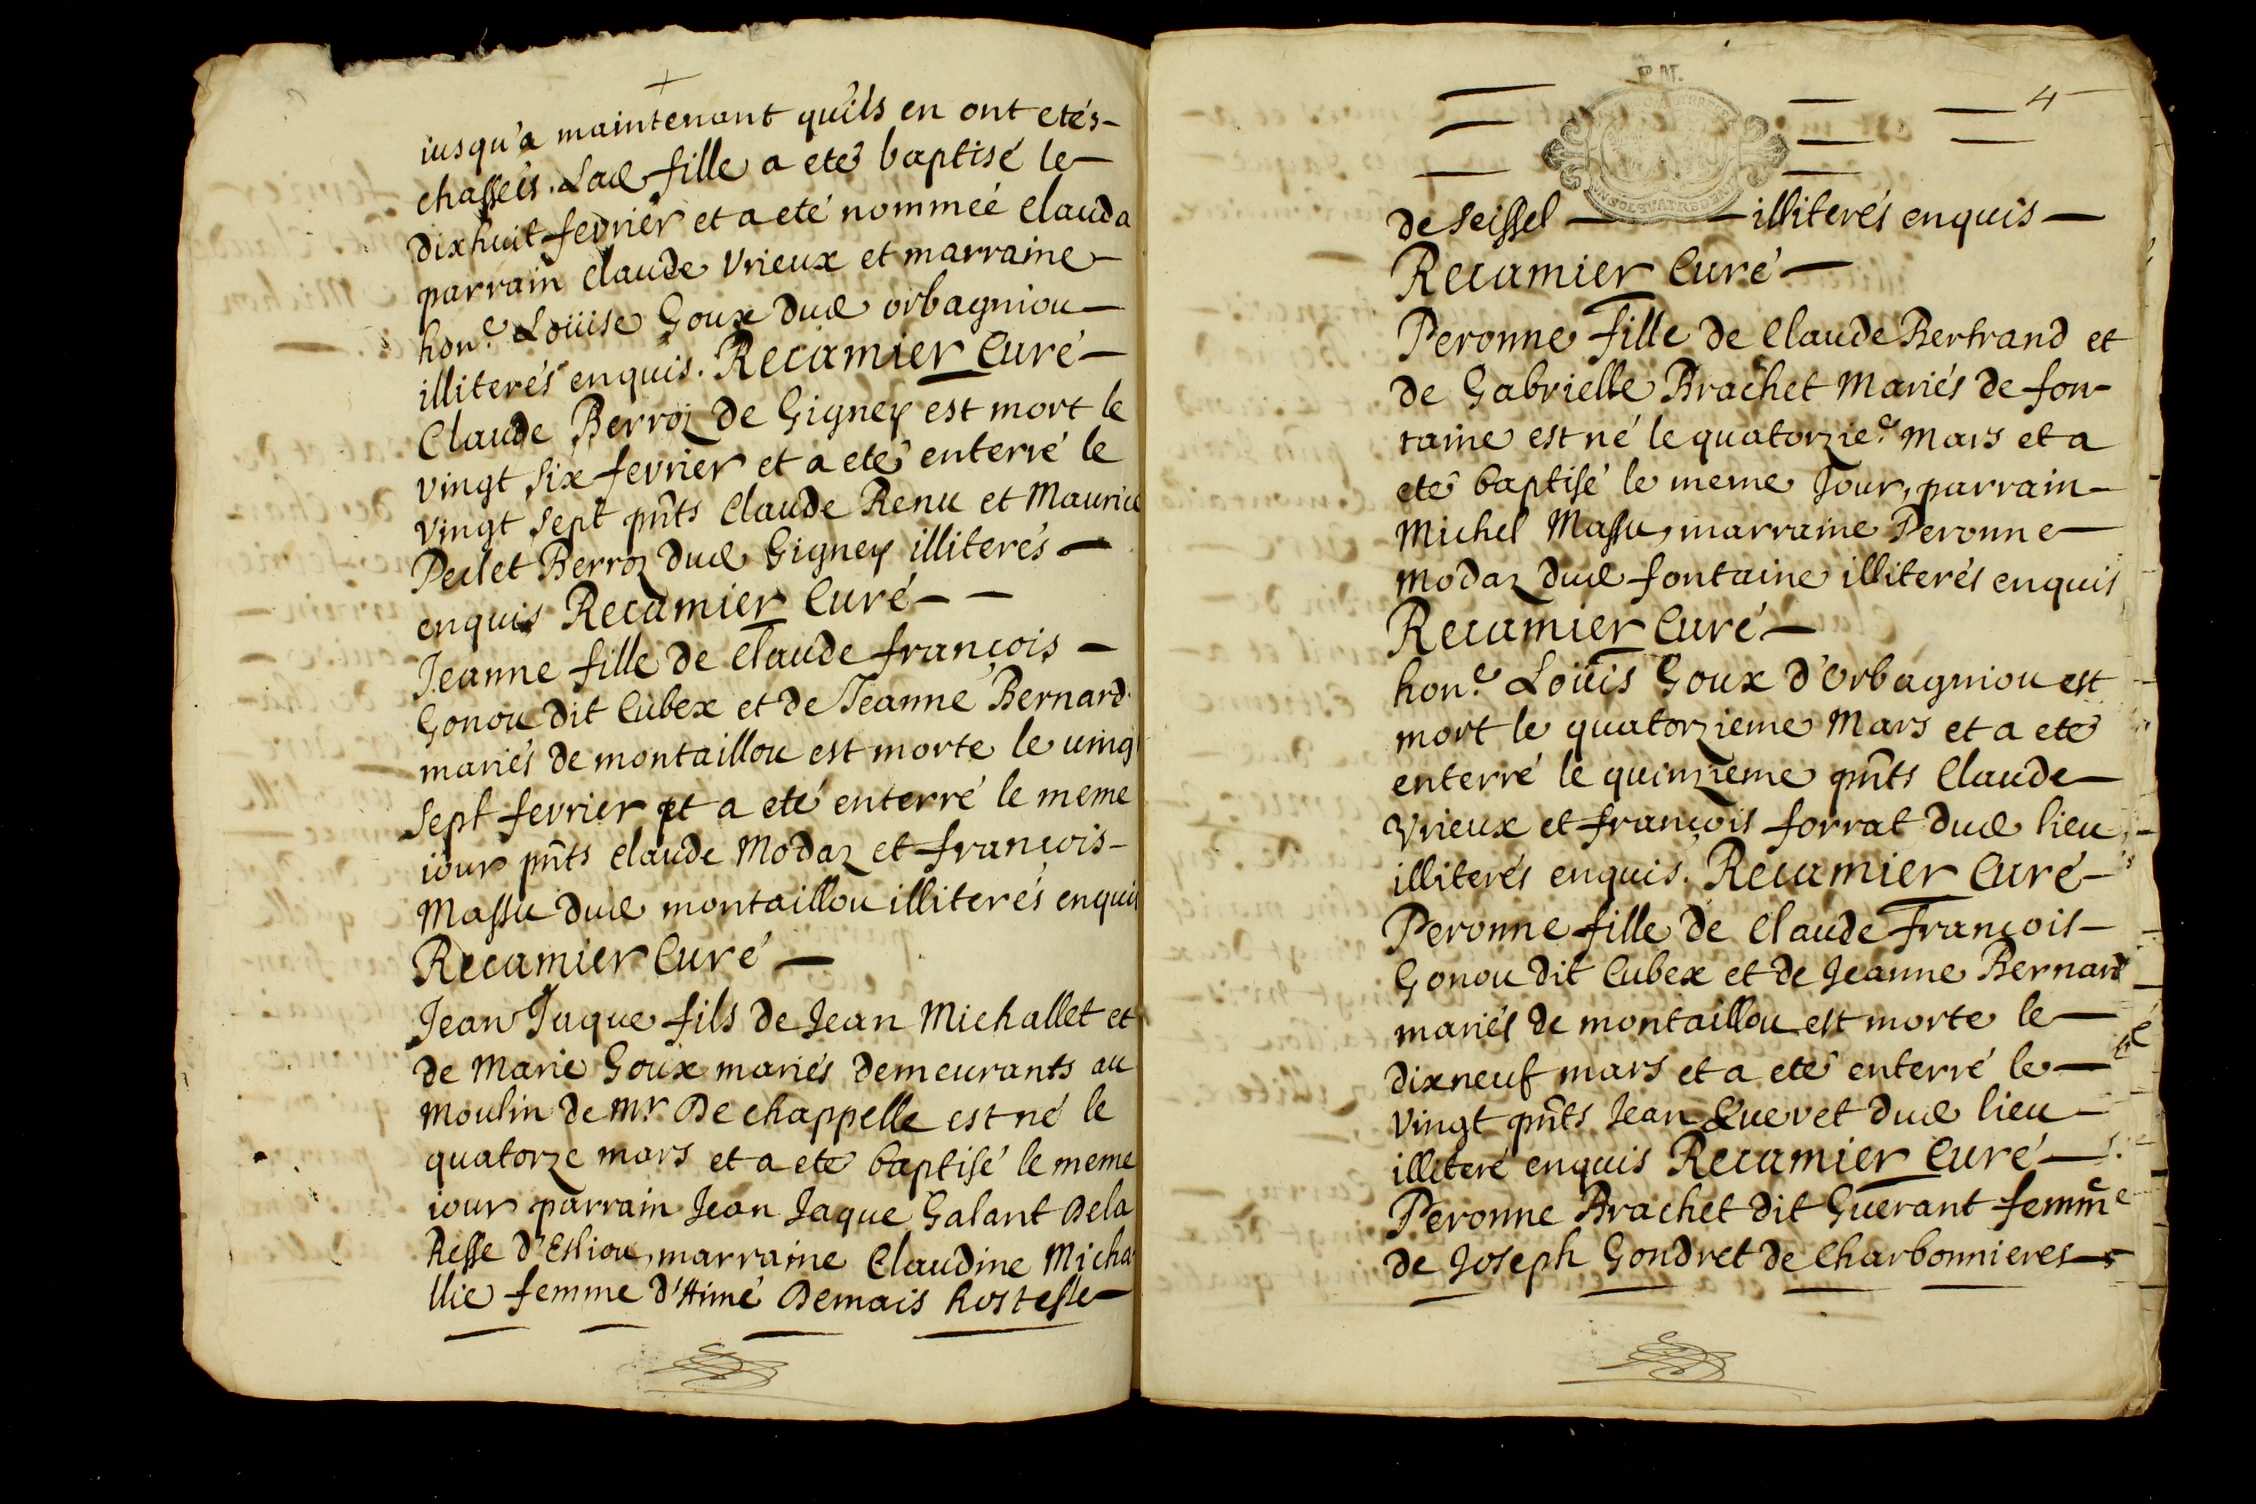 iusqu'a maintenant qu'ils en ont etés-
chasseés. Lad fille a eté baptisé le-
dixhuit fevrier et a eté nommeé clauda
parrain claude Vrieux et marraine-
hon.e Loüise Goux dud orbagniou-
illiterés enquis. Recamier Curé-
Claude Berroz de Gigney est mort le
vingt six fevrier et a eté enterré le
vingt sept pnts Claude Renu et Maurice
Berroz dud Gigney illiterés-
enquis Recamier Curé--
Jeanne fille de claude françois-
Gonou dit Cubex et de Jeanne Bernard
mariés de montaillou est morte le ving
sept fevrier et a eté enterré le meme
iour pnts claude Modaz et françois-
Massu dud montaillou illiterés enquis
Recamier Curé-
Jean Jaque fils de Jean Michallet et
de Marie Goux mariés demeurants au
moulin de Mr De chappelle est né le
quatorze mars et a eté baptisé le meme
iour parrain Jean Jaque Galant Dela
marraine Claudine Micha
llie femme d'Aimé Demais hostesse-
4
de seissel - - illiterés enquis-
Recamier Curé-
Peronne fille de Claude Bertrand et
de Gabrielle Brachet Mariés de fon-
taine est né le quatorzie.e Mars et a
eté baptisé le meme Jour, parrain-
Michel Massu, marraine Peronne-
Modaz dud fontaine illiterés enquis
Recamier Curé-
hon.e Loüis Goux d'Orbagniou est
mort le quatorzieme Mars et a eté
enterré le quinzieme pnts Claude-
Vrieux et françois forrat dud lieu
illiterés enquis. Recamier Curé-
Peronne fille de Claude françois-
Gonou dit Cubex et de Jeanne Bernard
mariés de montaillou est morte le-
dixneuf mars et a eté enterré le-
vingt pnts Jean dud lieu-
illiteré enquis Recamier Curé-
Peronne Brachet dit Guerant femme
de Joseph Gondret de Charbonnieres-